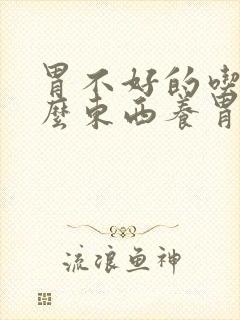 胃不好的喫
麽東西養胃
流浪鱼神